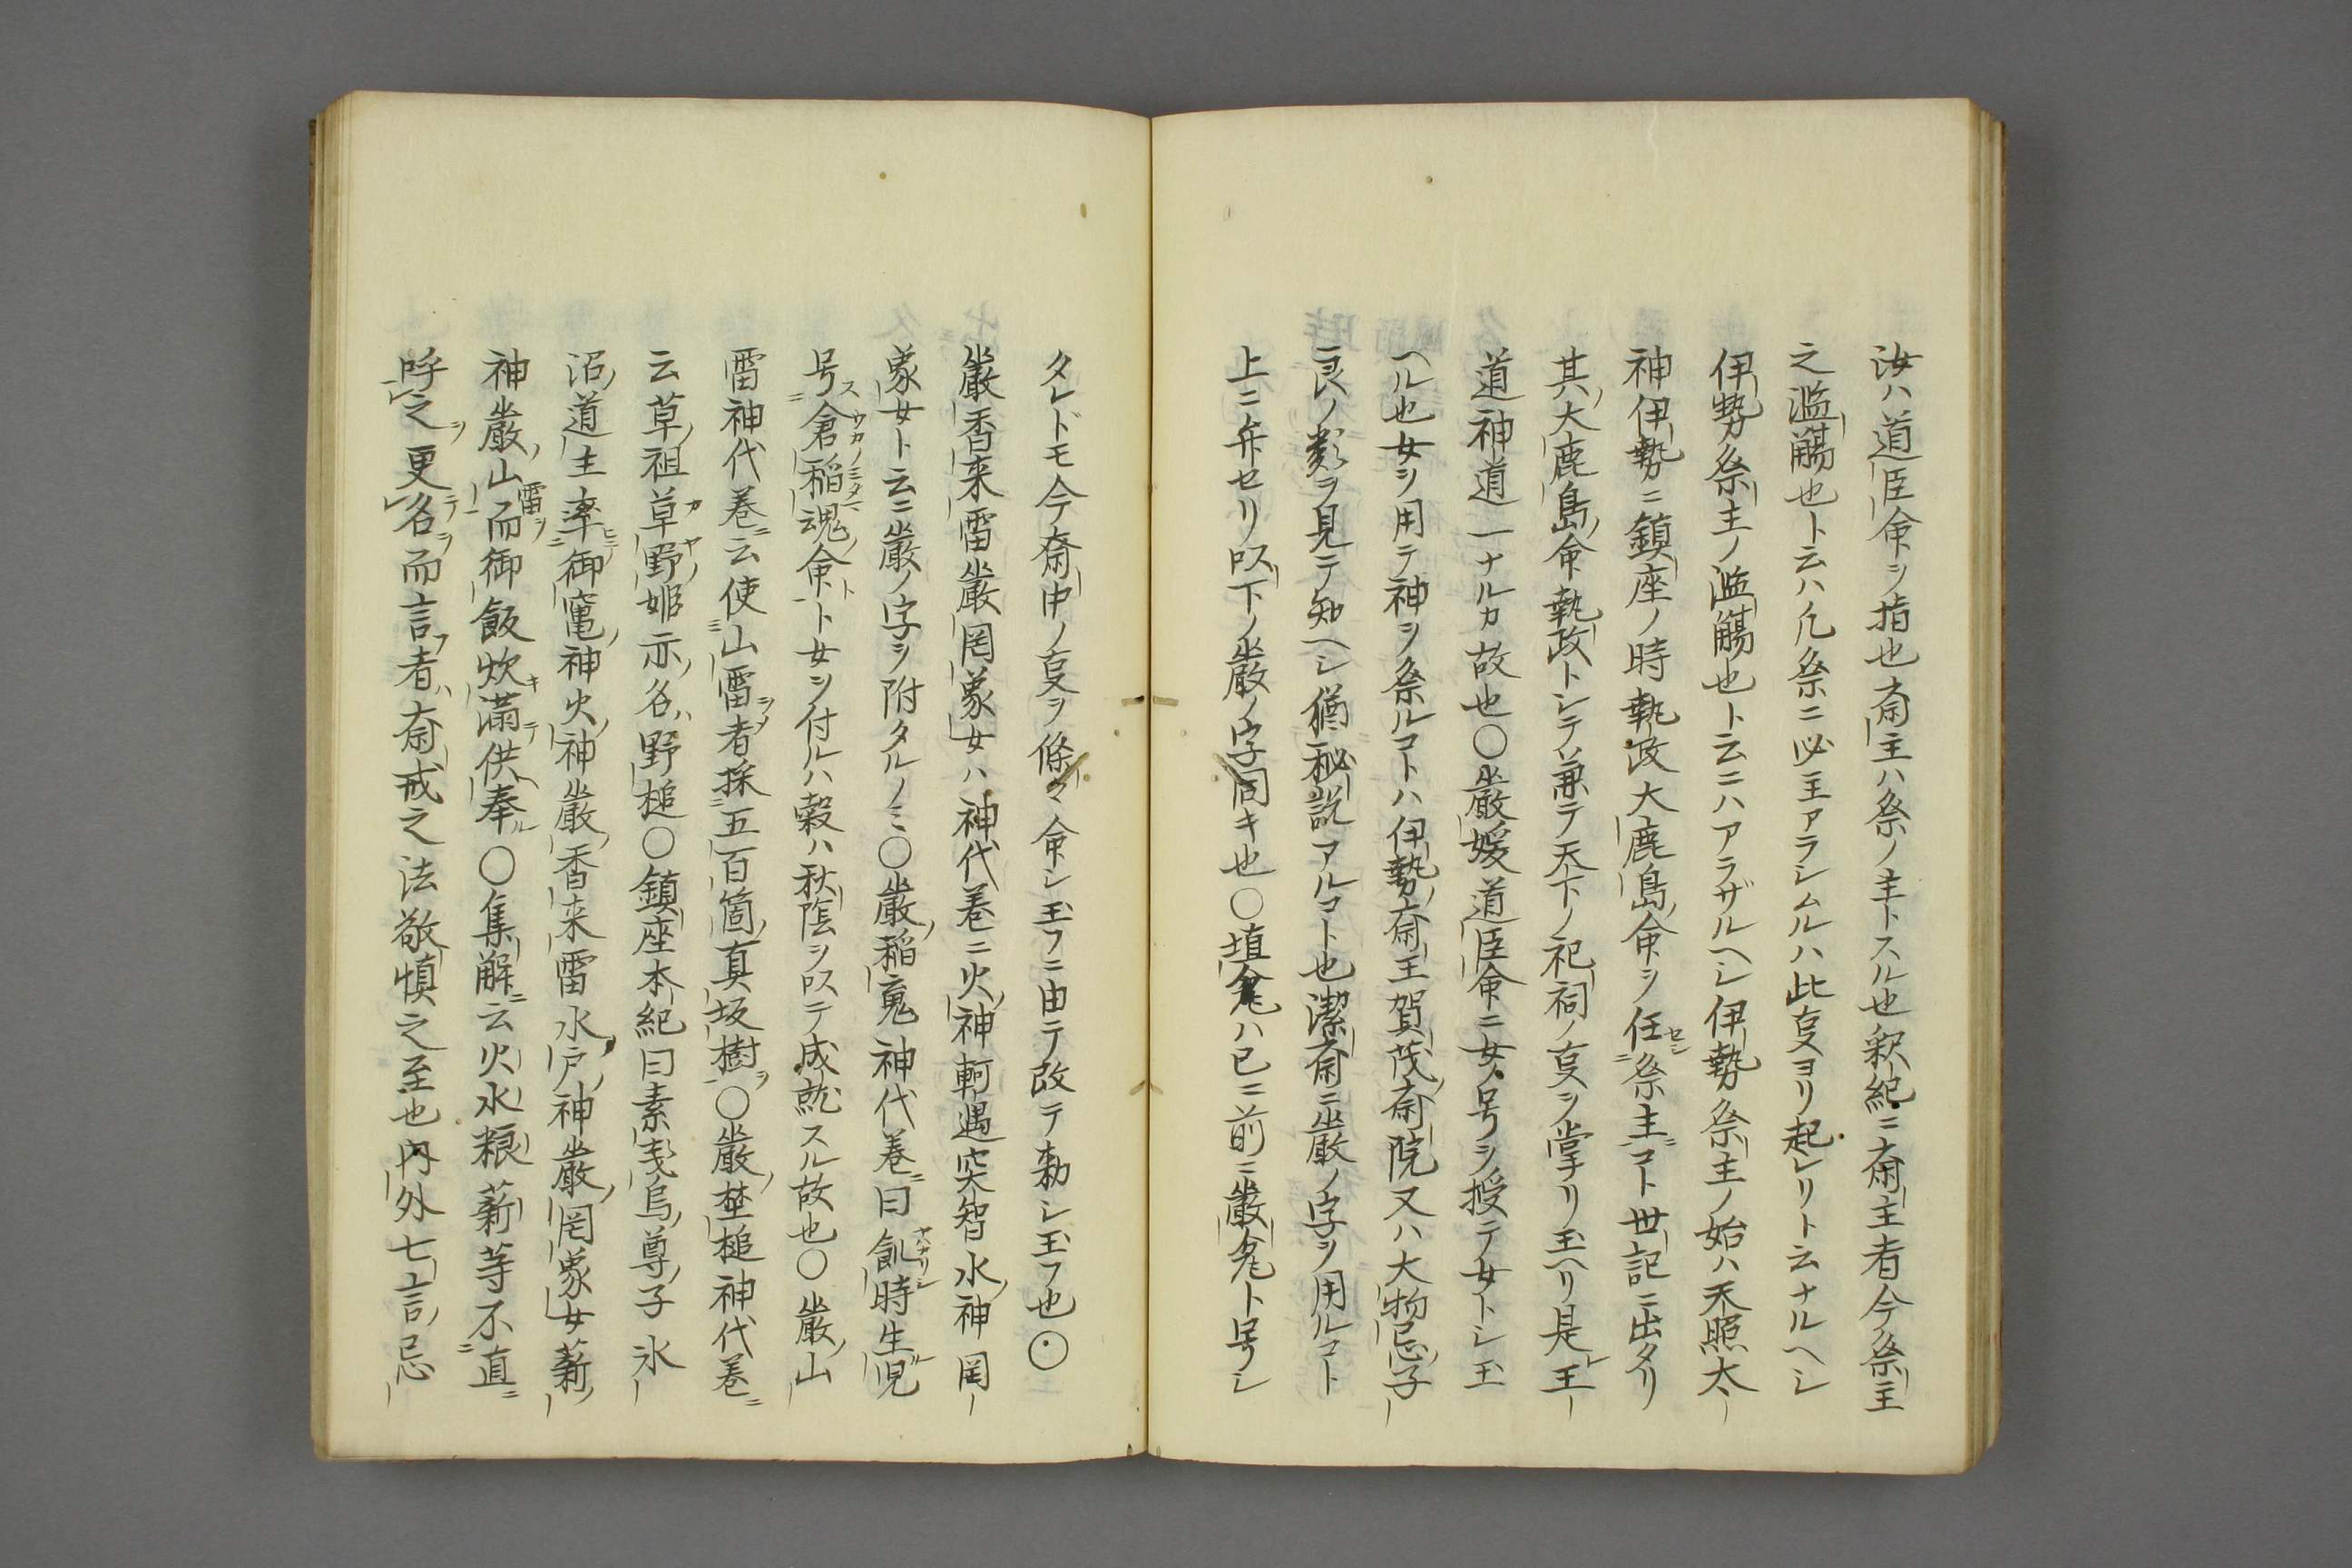 汝ハ道臣命ヲ指也斎主ハ祭ノ主トスル也釈紀ニ斎主者今祭主
之濫觴也ト云ハ凡祭ニ必主アラシムルハ此亊ヨリ起レリト云ナルヘシ
伊勢祭主ノ濫觴也ト云ニハアラザルヘシ伊勢祭主ノ始ハ天照太
神伊勢ニ鎮座ノ時執政大鹿島命ヲ任セシ祭主ニコト世記ニ出タリ
其大鹿島命執政トシテ兼テ天下ノ祀祠ノ亊ヲ掌リ玉ヘリ是王
道神道一ナルカ故也〇厳媛道臣命ニ女号ヲ授テ女トシ玉
ヘル也女ヲ用テ神ヲ祭ルコトハ伊勢斎王賀茂斎院又ハ大物忌子
良ノ類ヲ見テ知ヘシ猶秘説アルコト也潔斎ニ厳ノ字ヲ用ルコト
上ニ弁セリ以下ノ厳ノ字同キ也〇埴瓮ハ已ニ前ニ厳瓮ト号シ
タレドモ今斎中ノ亊ヲ條々命シ玉フニ由テ改テ勅シ玉フ也〇
厳香来雷厳罔象女ハ神代巻ニ火神軻遇突智水神罔
象女ト云ニ厳ノ字ヲ附タルノミ〇厳稲魂神代巻ニ曰飢時生児
号ス倉稲魂命ト女ヲ付ルハ穀ハ秋陰ヲ以テ成就スル故也〇厳山
雷神代巻ニ云使山雷者採五百箇真坂樹〇厳埜槌神代巻ニ
云草祖草野姫亦名ハ野槌〇鎮座本紀曰素戔烏尊子氷
沼道主率御竃神火神厳香来雷水戸神厳罔象女薪
神厳山雷而御飯炊満供奉〇集解ニ云火水粮薪等不直
呼之更名而言者斎戒之法敬慎之至也内外七言忌